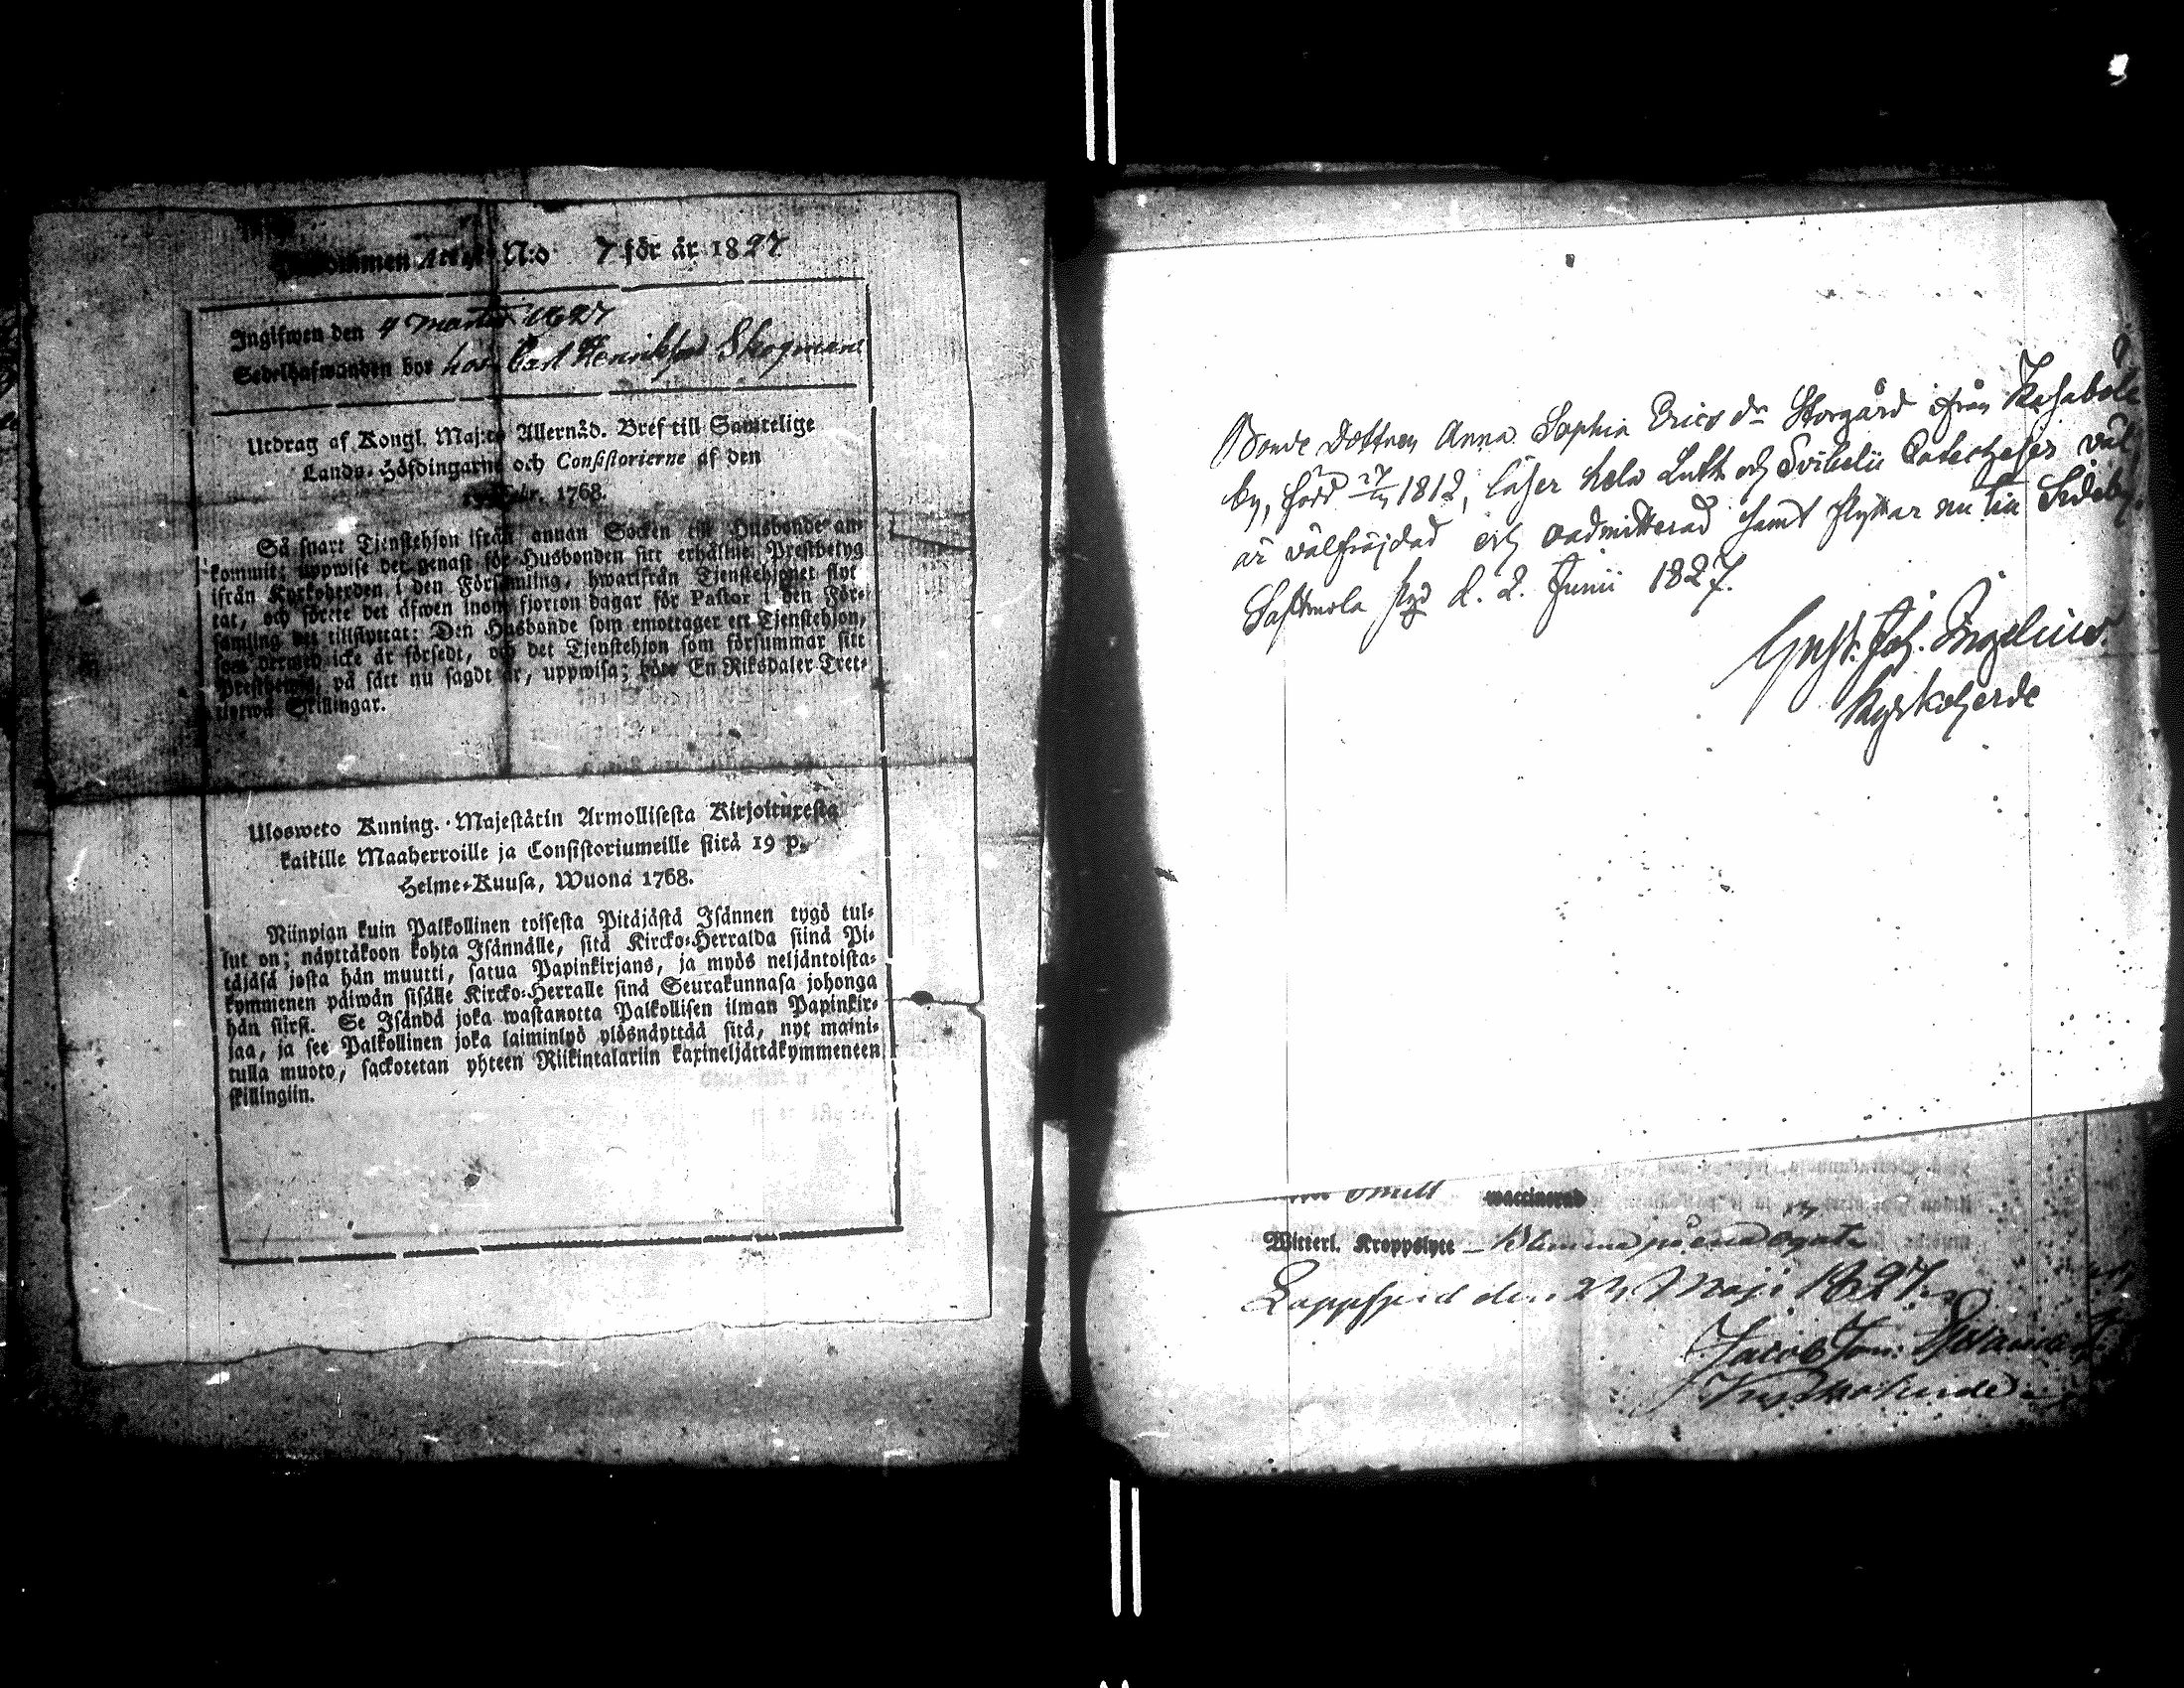 kommen Attest N:o 7 för år 1827
Ingifwen den 4 Martii 1827
Sedelhafwanden bor hos Carl Henriksson Skogman
Utdrag af Kongl. Maj:ts Allernåd. Bref till Samtelige
Lands-Höfdingarne och Consistorierne af den
Febr. 1768.
Så snart Tjenstehjon ifrån annan Socken till Husbonde an-
kommit; uppwise det genast för Husbonden sitt erhållne Prestbetyg
ifrån Kyrkoherden i den Församling, hwarifrån Tjenstehjonet flyt-
tat, och förete det äfwen inom fjorton dagar för Pastor i den För-
samling det tillflyttat: Den Husbonde som emottager ett Tjenstehjon,
som dermed icke är försedt, och det Tjenstehjon som försummar sitt
Prestbetyg, på sätt nu sagdt är, uppwisa; böte En Riksdaler Tret-
tiotwå Skillingar.
Ulosweto Kuning. Majestätin Armollisesta Kirjoituxesta
kaikille Maaherroille ja Consistoriumeille siitä 19 p.
Helme-Kuusa, Wuona 1768.
Niinpian kuin Palkollinen toisesta Pitäjästä Isännen tygö tul-
lut on; näyttäkoon kohta Isännälle, sitä Kircko-Herralda siinä Pi-
täjäsä josta hän muutti, satua Papinkirjans, ja myös neljäntoista-
kymmenen päiwän sisälle Kircko-Herralle sinä Seurakunnasa johonga
hän siirsi. Se Isändä joka wastanotta Palkollisen ilman Papinkir-
jaa, ja see Palkollinen joka laiminlyö ylösnäyttää sitä, nyt maini-
tulla muoto, sackotetan yhteen Riikintalariin kaxineljättäkymmeneen
skillingiin.
Bonde Dottren Anna Sophia Erics dr Storgård ifrån Kasabole
by, född 1812, läser hela Luth. och Svibelii Catecheser väl,
är välfräjdad och oadmitterad samt flyttar nu till Sideby.
Sastmola d. 2. Junii 1827.
Gust. Joh. Ingelius.
Kyrkoherde
waccinerad
Witterl. Kroppslyte - Blemma på ena ögat
Lappfjerd den Maji 1827.
Jacob Jon.